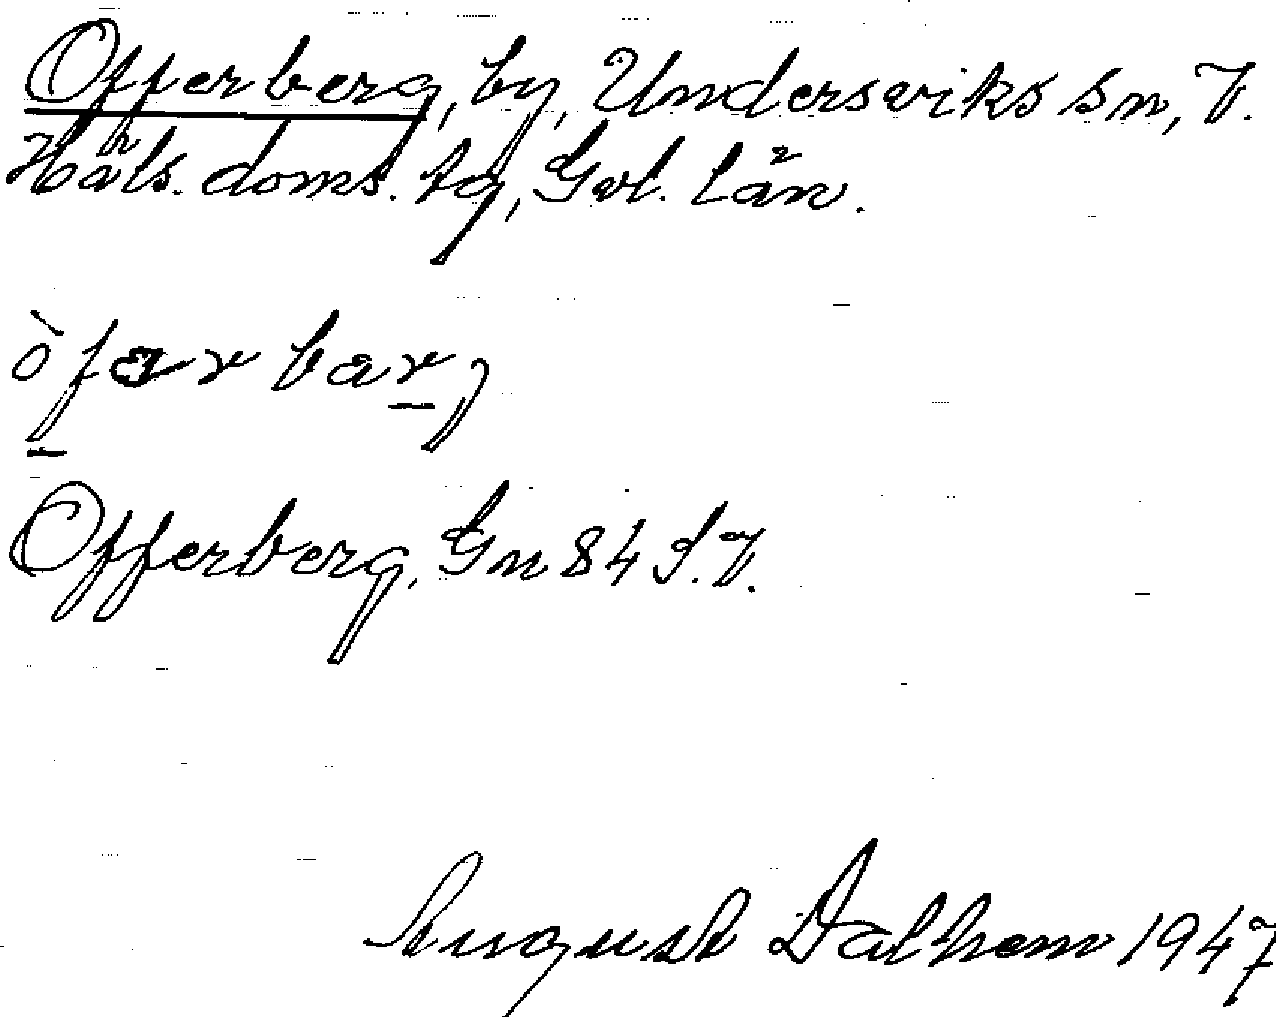 Offerberg, by, Undersviks sn, V.
Häls. doms. tg, Gvl. län.
òfər barg
Offerberg. Gn 84 S.V.
August Dalhem 1947